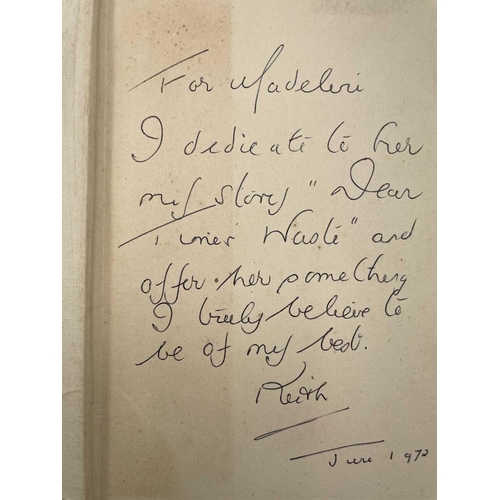 For Madeleine
I dedicate to her
my story "Dear
Times' Waste" and
offer her something
I truly believe to
be of my best.
Keith
June 1972